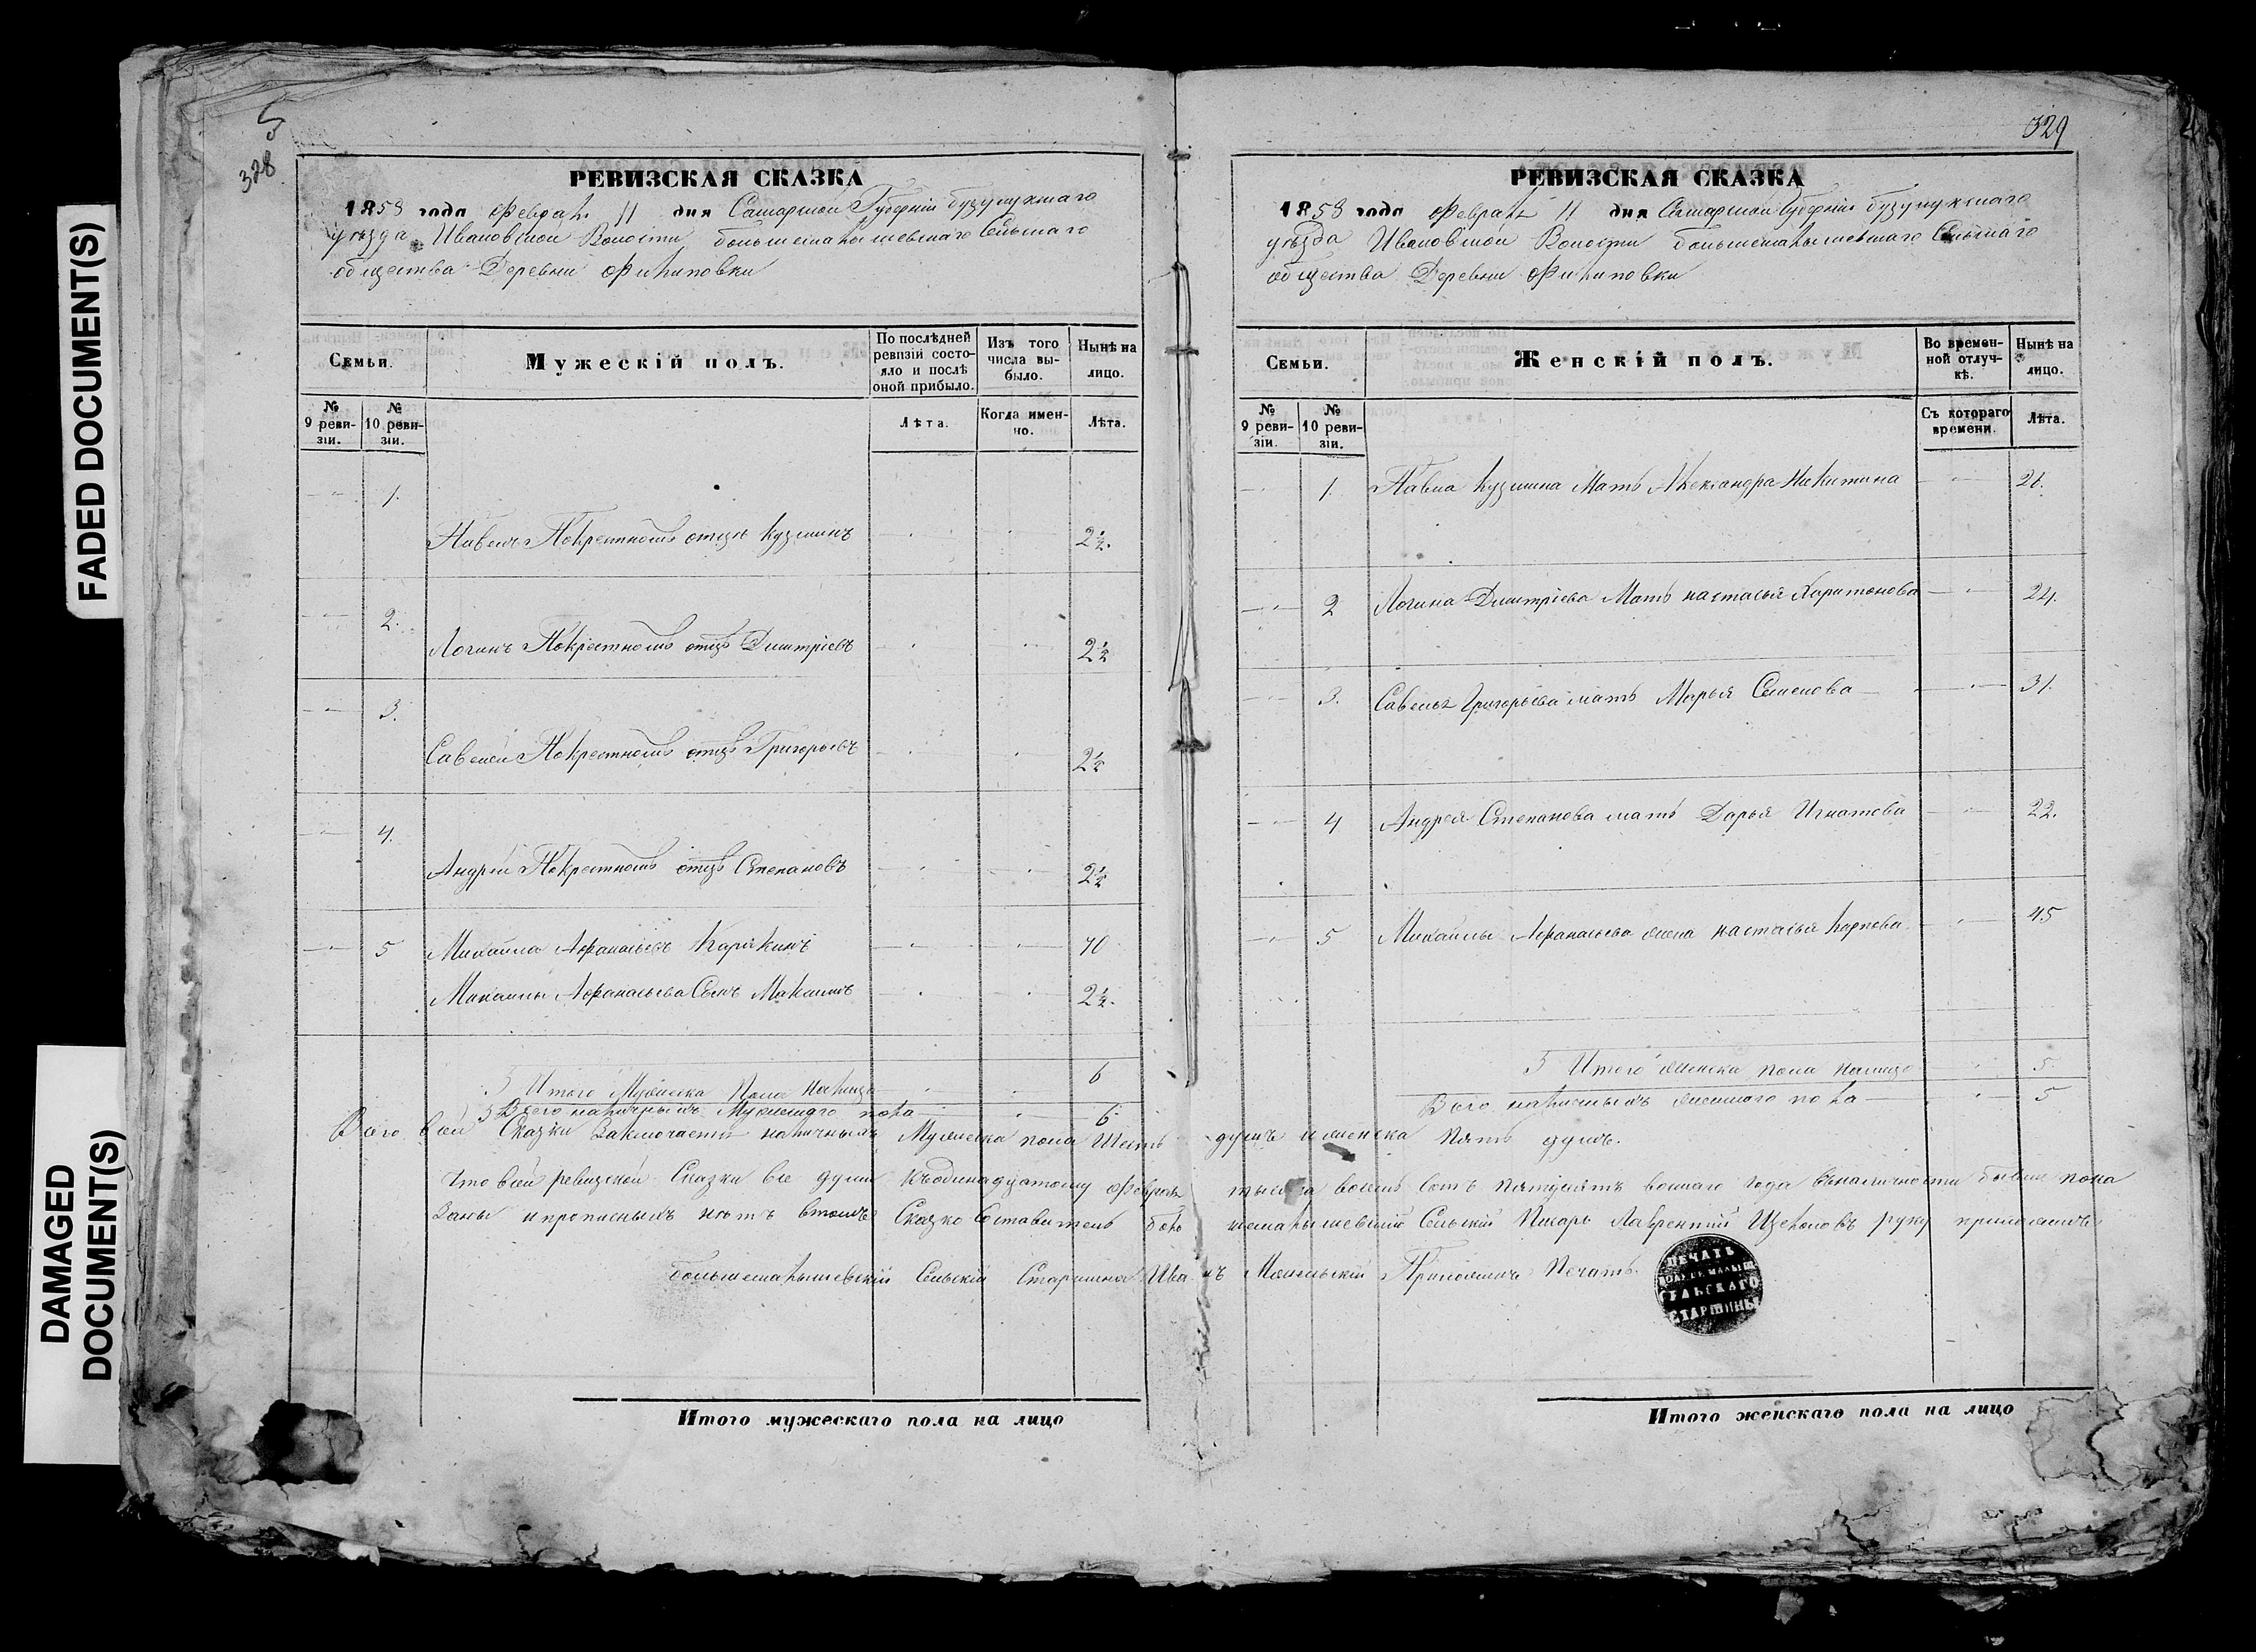 FADED DOCUMENT(S)
DAMAGED
DOCUMENT(S)
5
328
РЕВИЗСКАЯ СКАЗКА
1858 года Февраля 11 дня Самарской Губернии бузулукскаго
уезда Ивановской Волости большемалышевскаго Сельскаго
общества Деревни Филиповки
Семьи.
Мужескій полъ.
По послѣдней ревизіи состояло и послѣ оной прибыло.
Изъ того числа выбыло.
Нынѣ на лицо.
№ 9 ревизіи.
№ 10 ревизіи.
Лѣта.
Когда именно.
Лѣта.
1.
Павелъ Покрестному отцу Кузминъ 2½.
2.
Логинъ Покрестному отцу Дмитріевъ 2½
3.
Савелей Покрестному отцу Григорьевъ 2½
4.
Андрей Покрестному отцу Степановъ 2½
5 Михайла Афанасьевъ 40
Михайлы Афанасьева Сынъ Максимъ 2½.
5 Итого Мужеска Пола Налицо 6
5 Всего наличныхъ Мужескаго пола 6
329
РЕВИЗСКАЯ СКАЗКА
1858 года Февраля 11 дня Самарской Губернии бузулукскаго
уезда Ивановской Волости большемалышевскаго Сельскаго
общества Деревни Филиповки
Семьи.
Женскій полъ.
Во временной отлучкѣ.
Нынѣ на лицо.
№ 9 ревизіи.
№ 10 ревизіи.
Съ котораго времени.
Лѣта.
1. Павла Кузмина Мать Александра Никитина 21.
2 Логина Дмитріева Мать настасья Харитонова 24.
3. Савелья Григорьева мать Марья Семенова 31.
4 Андрея Степанова мать Дарья Игнатова 22.
5 Михайлы Афанасьева жена настасья Карпова 45
5 Итого женска пола налицо 5
Всего наличныхъ женскаго пола 5
Всего всей Сказки Заключаетъ наличныхъ Мужеска пола Шесть душъ и женска пять душъ.
Что всей ревизской Сказки все души Кводинадцатому Февраля тысяча восемь Сотъ пятдесятъ восмаго года вналичности бывши пока
Заны и прописныхъ нетъ втомъ Сказко Составитель большемалышевский Сельский Писарь Лаврентий руку приложилъ
большемалышевскій Сельскій Старшина Иванъ Приложилъ Печать.
ПЕЧАТЬ
СЕЛЬСКАГО
СТАРШИНЫ
Итого мужескаго пола на лицо
Итого женскаго пола на лицо